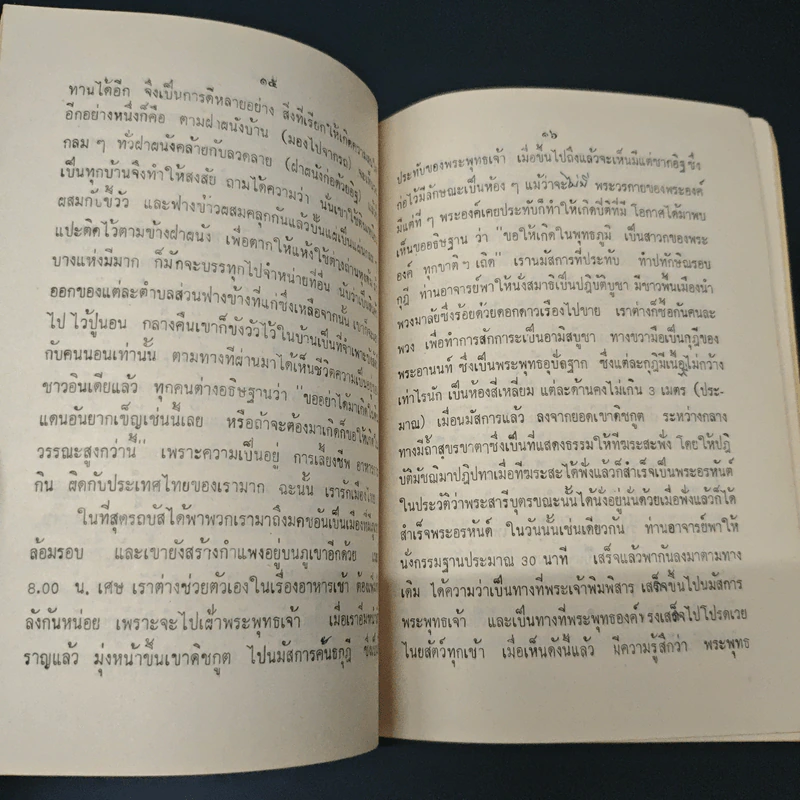 ๑๕
ทานได้อีก จึงเป็นการดีหลายอย่าง สิ่งที่เรียกให้เกิดความ
อีกอย่างหนึ่งก็คือ ตามฝาผนังบ้าน (มองไปจากรถ)
กลม ๆ ทั่วฝาผนังคล้ายกับลวดลาย (ฝาผนังก่อด้วยอิฐ)
เป็นทุกบ้านจึงทำให้สงสัย ถามได้ความว่า นั่นเขาใช้
ผสมกับขี้วัว และฟางข้าวผสมคลุกกันแล้วปั้นแผ่เป็นแผ่น
แปะติดไว้ตามข้างฝาผนัง เพื่อตากให้แห้งใช้ต่างถ่าน
บางแห่งมีมาก ก็มักจะบรรทุกไปจำหน่ายที่อื่น นับว่า
ออกของแต่ละตำบลส่วนฟางข้างที่แก่ซึ่งเหลือจากนั้น
ไป ไว้ปูนอน กลางคืนเขาก็ขังวัวไว้ในบ้านเป็นที่จำเพาะ
กับคนนอนเท่านั้น ตามทางที่ผ่านมาได้เห็นชีวิตความเป็น
ชาวอินเดียแล้ว ทุกคนต่างอธิษฐานว่า "ขออย่าได้มาเกิด
แดนอันยากเข็ญเช่นนี้เลย หรือถ้าจะต้องมาเกิดก็ขอให้
วรรณะสูงกว่านี้" เพราะความเป็นอยู่ การเลี้ยงชีพ
กิน ผิดกับประเทศไทยของเรามาก ฉะนั้น เรารักเมือง
ในที่สุดรถบัสได้พาพวกเรามาถึงมคธอันเป็นเมือง
ล้อมรอบ และเขายังสร้างกำแพงอยู่บนภูเขาอีกด้วย
8.00 น. เศษ เราต่างช่วยตัวเองในเรื่องอาหารเช้า
ลังกันหน่อย เพราะจะไปเฝ้าพระพุทธเจ้า เมื่อเรา
ราญแล้ว มุ่งหน้าขึ้นเขาคิชกูต ไปนมัสการคันธกุฎี
๑๖
ประทับของพระพุทธเจ้า เมื่อขึ้นไปถึงแล้วจะเห็นมีแต่ซากอิฐ ซึ่ง
ก่อไว้มีลักษณะเป็นห้อง ๆ แม้ว่าจะไม่มี พระวรกายของพระองค์
มีแต่ที่ ๆ พระองค์เคยประทับก็ทำให้เกิดปีติที่มี โอกาสได้มาพบ
เห็นขออธิษฐาน ว่า "ขอให้เกิดในพุทธภูมิ เป็นสาวกของพระ
องค์ ทุกชาติ ๆ เถิด" เรานมัสการที่ประทับ ทำปทักษิณรอบ
กุฎี ท่านอาจารย์พาให้นั่งสมาธิเป็นปฏิบัติบูชา มีชาวพื้นเมืองนำ
พวงมาลัยซึ่งร้อยด้วยดอกดาวเรืองไปขาย เราต่างก็ซื้อกันคนละ
พวง เพื่อทำการสักการะเป็นอามิสบูชา ทางขวามือเป็นกุฎีของ
พระอานนท์ ซึ่งเป็นพระพุทธอุปัฏฐาก ซึ่งแต่ละกุฎีมีเนื้อไม่กว้าง
เท่าไรนัก เป็นห้องสี่เหลี่ยม แต่ละด้านคงไม่เกิน 3 เมตร (ประ-
มาณ) เมื่อนมัสการแล้ว ลงจากยอดเขาคิชกูต ระหว่างกลาง
ทางมีถ้ำสุขรขาตาซึ่งเป็นที่แสดงธรรมให้ทีฆระสะฟัง โดยให้ปฏิ
บัติมัชฌิมาปฏิปทาเมื่อทีฆระสะได้ฟังแล้วก็สำเร็จเป็นพระอรหันต์
ในประวัติว่าพระสารีบุตรขณะนั้นได้นั่งอยู่นั่นด้วยเมื่อฟังแล้วก็ได้
สำเร็จพระอรหันต์ ในวันนั้นเช่นเดียวกัน ท่านอาจารย์พาให้
นั่งกรรมฐานประมาณ 30 นาที เสร็จแล้วพากันลงมาตามทาง
เดิม ได้ความว่าเป็นทางที่พระเจ้าพิมพิสาร เสร็จขึ้นไปนมัสการ
พระพุทธเจ้า และเป็นทางที่พระพุทธองค์ทรงเสร็จไปโปรดเวย
ไนยสัตว์ทุกเช้า เมื่อเห็นดังนี้แล้ว มีความรู้สึกว่า พระพุทธ